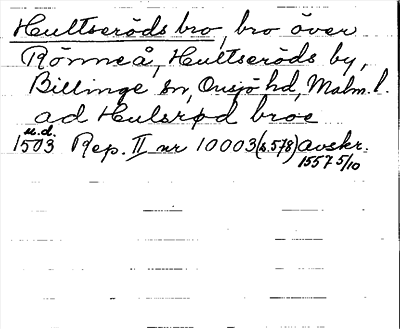 Hultseröds bro, bro över
Rönneå, Hultseröds by,
Billinge sn, Onsjö hd, Malm. l.
ad Hulsrød broe
u.d.
1503 Rep. II nr 10003 (s. 578) avskr.
1557 5/10